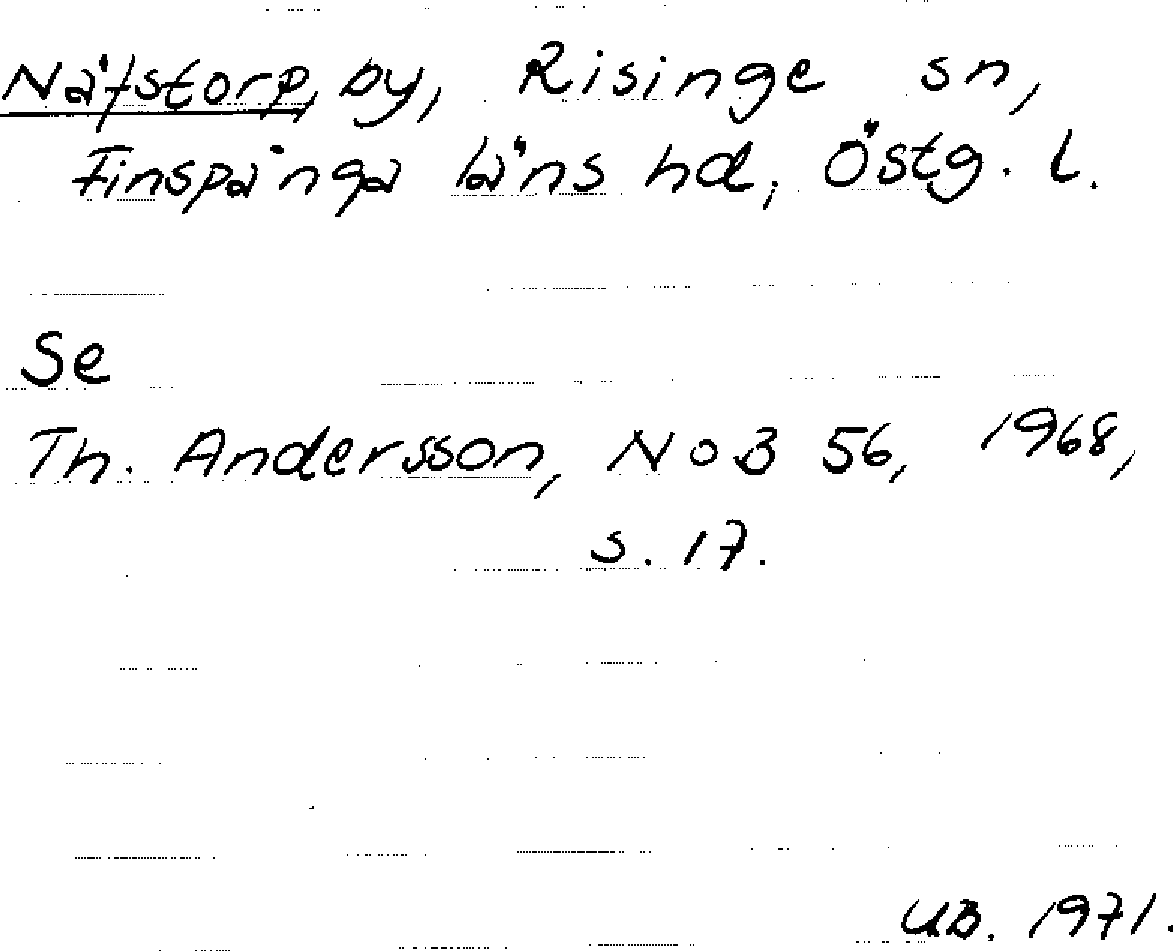 Näfstorp, by, Risinge sn,
Finspånga läns hd, Östg. l.
Se
Th. Andersson, NoB 56, 1968,
s. 17.
UB. 1971.